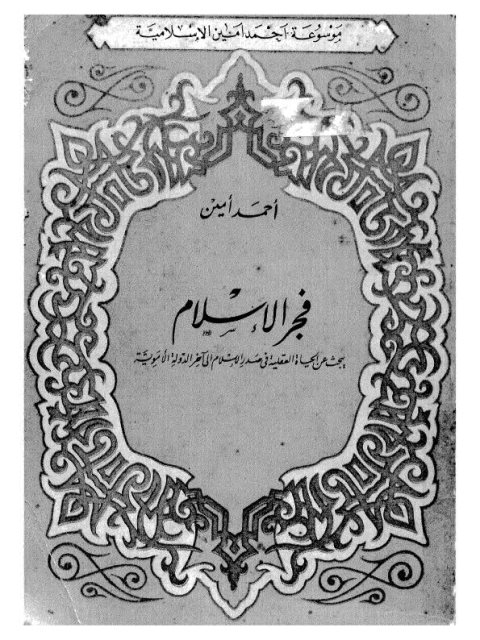 موسوعة أحمد امين الإسلامية
أحمد أمين
فجر الإسلام
يبحث عن الحياة العقلية في صدر الإسلام إلى آخر الدولة الأموية